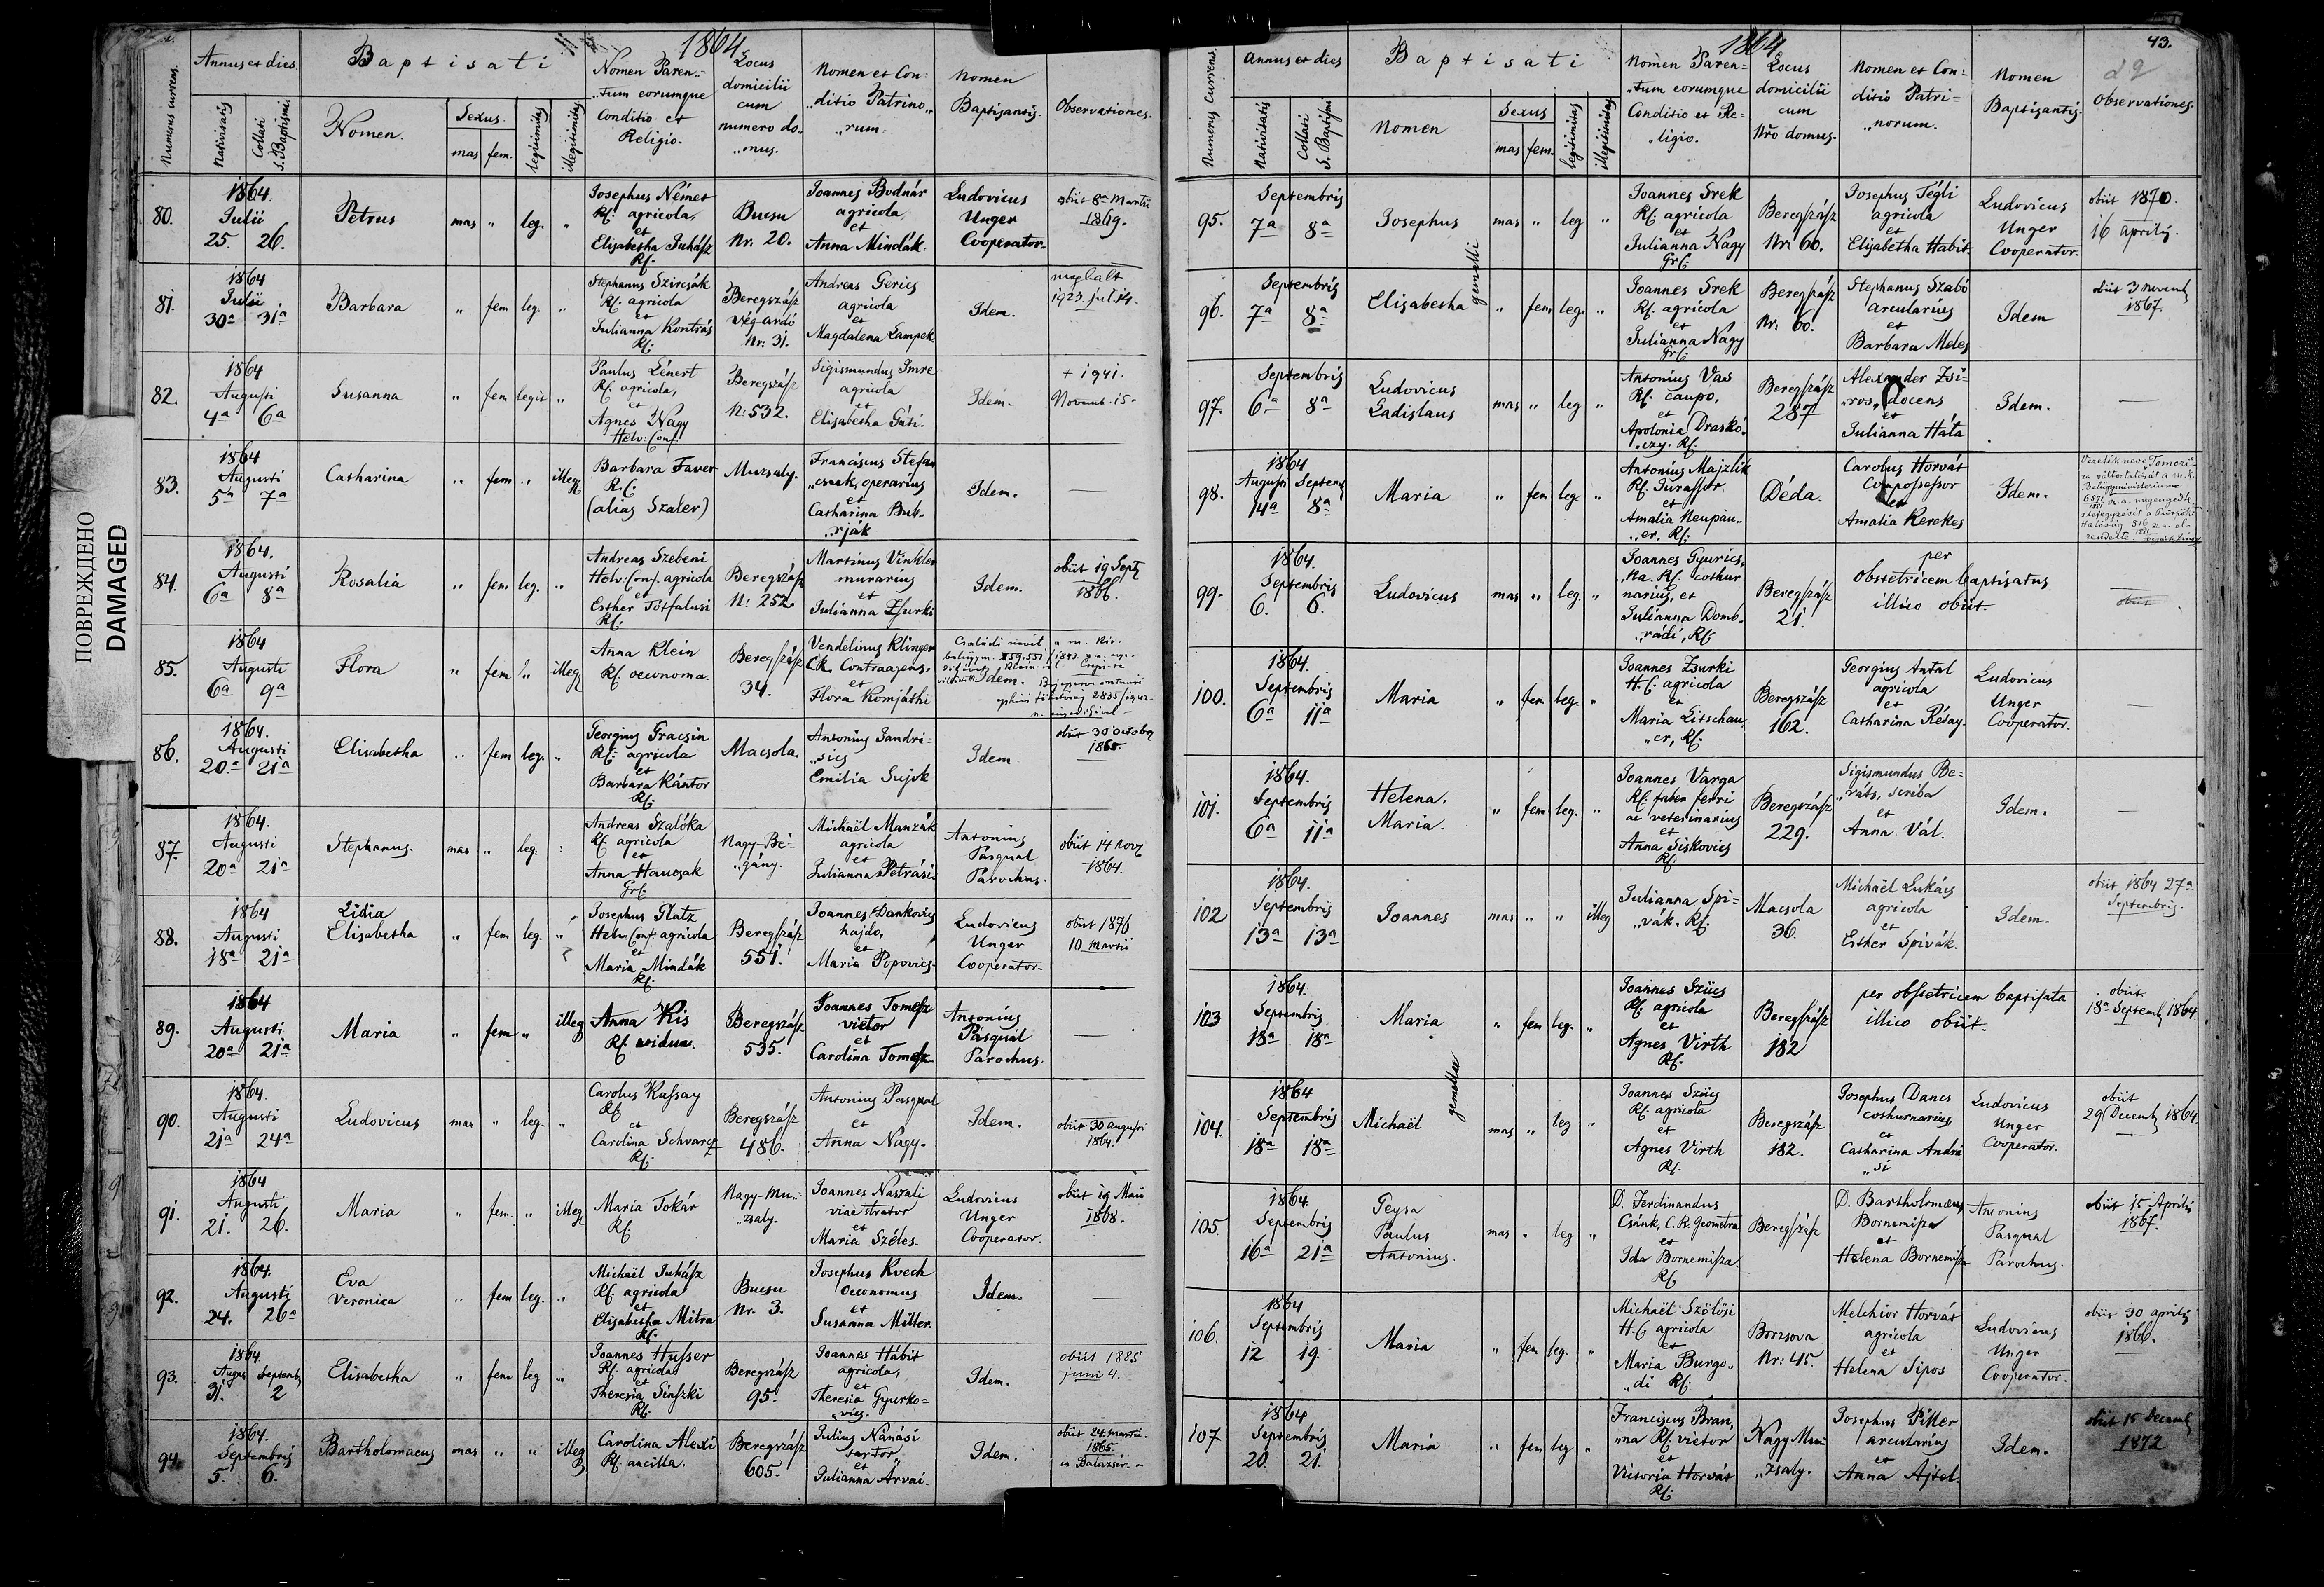 ПОВРЕЖДЕНО
DAMAGED
1864
Numerus currens.
Annus et dies
Nativitatis
Collati S. Baptismi
Baptisati
Nomen.
Sexus.
mas fem.
legitimitas
illegitimitas
Nomen Paren-
„tum eorumque
Conditio et
Religio.
Locus
domicilii
cum
numero do-
„mus.
Nomen et Con-
„ditio Patrino„
„rum.
Nomen
Baptisantis.
Observationes.
80. 1864 Julii 25. 26. Petrus mas „ leg. „
Josephus Német
Rf. agricola,
et
Elisabetha Juhász
Rf.
Bucsu
Nr. 20.
Joannes Bodnár
agricola,
et
Anna Mindák.
Ludovicus
Unger
Cooperator.
obiit 8a Martii
1869.
81. 1864 Julii 30a 31a Barbara „ fem leg. „
Stephanus Szircsák
Rf. agricola
et
Julianna Kontrás
Rf.
Beregszász
Vég-Ardó
Nr. 31.
Andreas Gerics
agricola
et
Magdalena Lampek
Idem.
meghalt
1923. jul. 14.
82. 1864 Augusti 4a 6a Susanna „ fem legit „
Paulus Lénert
Rf. agricola,
et
Agnes Nagy
Helv: Conf.
Beregszász
N: 532.
Sigismundus Imre
agricola
et
Elisabetha Gúti.
Idem.
+ 1941.
Novemb. 15.
83. 1864 Augusti 5a 7a Catharina „ fem „ illeg
Barbara Faver
R.C.
(alias Szaler)
Muzsaly.
Franciscus Stefan
„csnak, operarius
et
Catharina Buk-
„rják
Idem.
—
84. 1864. Augusti 6a 8a Rosalia „ fem leg. „
Andreas Szebeni
Helv: Conf. agricola
et
Esther Tótfalusi
Rf.
Beregszász
N: 252.
Martinus Vinkler
murarius
et
Julianna Zsurki
Idem.
obiit 19 Sept
1866.
85. 1864 Augusti 6a 9a Flora „ fem „ illeg
Anna Klein
Rf. oeconoma.
Beregszász
34.
Vendelinus Klinger
et
Flora Komjáthi
Idem.
86. 1864. Augusti 20a 21a Elisabetha „ fem leg. „
Georgius Gracsin
Rf. agricola
et
Barbara Kántor
Rf.
Macsola.
Antonius Jandri-
„sics
Emilia Sujok
Idem.
obiit 30 octobr
1865.
87. 1864. Augusti 20a 21a Stephanus. mas „ leg. „
Andreas Szalóka
Rf. agricola
et
Anna Hancsak
Grf.
Nagy-Bé-
„gány.
Michaël Manzák
agricola
et
Julianna Petrási
Antonius
Pásqual
Parochus.
obiit 14 nov
1864.
88. 1864 Augusti 18a 21a Lidia
Elisabetha „ fem leg. „
Josephus Platz
Helv. Conf. agricola
et
Maria Mindák
Rf.
Beregszász
551.
Joannes Dankovics
hajdo,
et
Maria Popovics
Ludovicus
Unger
Cooperator.
obiit 1876
10 martii
89. 1864 Augusti 20a 21a Maria „ fem „ illeg
Anna Kis
Rf. vidua.
Beregszász
535.
Joannes Tomesz
vietor
et
Carolina Tomesz
Antonius
Pásquál
Parochus.
—
90. 1864. Augusti 21a 24a Ludovicus mas „ leg. „
Carolus Kassay
Rf.
et
Carolina Schvarcz
Rf.
Beregszász
486.
Antonius Pasqual
et
Anna Nagy.
Idem.
obiit 30 augusti
1864.
91. 1864 Augusti 21. 26. Maria „ fem. „ illeg
Maria Tokár
Rf.
Nagy-Mu-
„zsaly.
Joannes Naszali
viae strator
et
Maria Széles.
Ludovicus
Unger
Cooperator.
obiit 19 Maii
1868.
92. 1864. Augusti 24. 26a Eva
Veronica „ fem leg. „
Michaël Juhász
Rf. agricola
et
Elisabetha Mitra
Rf.
Bucsu
Nr. 3.
Josephus Kvech
Oeconomus
et
Susanna Miller.
Idem.
—
93. 1864. August Septemb 31. 2 Elisabetha „ fem leg „
Joannes Husser
Rf. agricola
et
Theresia Sinszki
Rf.
Beregszász
95.
Joannes Hábit
agricola,
et
Theresia Gyurko-
„vics.
Idem.
obiit 1885
juni 4.
94. 1864. Septembris 5. 6. Bartholomaeus mas „ „ illeg
Carolina Alexi
Rf. ancilla.
Beregszász
605.
Julius Nánási
sartor
et
Julianna Arvai.
Idem.
obiit 24 martii
1865.
in Balazsér.
1864
43.
Numerus currens.
Annus et dies
Nativitatis
Collati S. Baptismi
Baptisati
Nomen
Sexus
mas fem.
legitimitas
illegitimitas
Nomen Paren-
„tum eorumque
Conditio et Re-
„ligio.
Locus
domicilii
cum
Nro domus.
Nomen et Con-
ditio Patri-
„norum.
Nomen
Baptisantis.
Observationes.
95. Septembris 7a 8a Josephus mas „ leg „
gemelli
Joannes Srek
Rf. agricola
et
Julianna Nagy
Grf.
Beregszász
Nr. 60.
Josephus Tégli
agricola
et
Elisabetha Habit.
Ludovicus
Unger
Cooperator.
obiit 1870.
16 aprilis.
96. Septembris 7a 8a Elisabetha „ fem leg. „
Joannes Srek
Rf. agricola
et
Julianna Nagy
Grf.
Beregszász
Nr: 60.
Stephanus Szabó
arcularius
et
Barbara Meles
Idem
obiit 3 novemb
1867.
97. Septembris 6a 8a Ludovicus
Ladislaus mas „ leg „
Antonius Vas
Rf. caupo,
et
Apolonia Draskó-
„czy. Rf.
Beregszász
287
Alexander Zsi-
„ros, docens
et
Julianna Hata
Idem.
—
98. 1864 August Septemb 14a 8a Maria „ fem leg. „
Antonius Majzlik
Rf. Jurassor
et
Amalia Neupau-
„er, Rf.
Déda.
Carolus Horvát
Compossessor
et
Amalia Kerekes
Idem.
99. 1864. Septembris 6. 6. Ludovicus mas „ leg. „
Joannes Gyurics,
„ka, Rf. cothur
narius, et
Julianna Domb-
„rádi, Rf.
Beregszász
21.
per
obstetricem baptisatus
illico obiit.
obiit
100. 1864. Septembris 6a 11a Maria „ fem leg. „
Joannes Zsurki
H.C. agricola
et
Maria Litschau
„er, Rf.
Beregszász
162.
Georgius Antal
agricola
et
Catharina Résay.
Ludovicus
Unger
Cooperator.
—
101. 1864. Septembris 6a 11a Helena.
Maria. „ fem leg. „
Joannes Varga
Rf. faber ferri
ac veterinarius
et
Anna Siskovics
Rf.
Beregszász
229.
Sigismundus Be-
„ráts, scriba
et
Anna Vál.
Idem.
—
102 1864. Septembris 13a 13a Joannes mas „ „ illeg
Julianna Spi-
„vák. Rf.
Macsola
36.
Michaël Lukács
agricola
et
Esther Spivák.
Idem.
obiit 1864 27a
Septembris.
103 1864. Septembris 18a 18a Maria „ fem leg. „
gemellae
Joannes Szücs
Rf. agricola
et
Agnes Virth
Rf.
Beregszász
182
per obstetricem baptisata
illico obiit.
obiit
18a Septemb 1864.
104. 1864 Septembris 18a 18a Michaël mas „ leg „
Joannes Szücs
Rf. agricola
et
Agnes Virth
Rf.
Beregszász
182.
Josephus Dancs
cothurnarius
et
Catharina Andrá
„si
Ludovicus
Unger
Cooperator.
obiit
29 Decemb 1864.
105. 1864. Septembris 16a 21a Geysa
Paulus
Antonius. mas „ leg „
D. Ferdinandus
Csánk, C.R. Geometra
et
Ida Bornemisza
Rf.
Beregszász
D. Bartholomaeus
Bornemisza
et
Helena Bornemisza
Antonius
Pasqual
Parochus.
obiit 15 Aprilis
1867.
106. 1864 Septembris 12 19 Maria „ fem leg. „
Michaël Szölösi
H.C. agricola
et
Maria Burgo-
„di Rf.
Borzsova
Nr: 45.
Melchior Horvát
agricola
et
Helena Sipos
Ludovicus
Unger
Cooperator.
obiit 30 aprilis
1866.
107 1864 Septembris 20. 21. Maria „ fem leg „
Franciscus Bran,
„na Rf. vietor
et
Victoria Horvát
Rf.
Nagy Mu-
„zsaly.
Josephus Piller
arcularius
et
Anna Ajtel.
Idem.
obiit 15 Decemb
1872